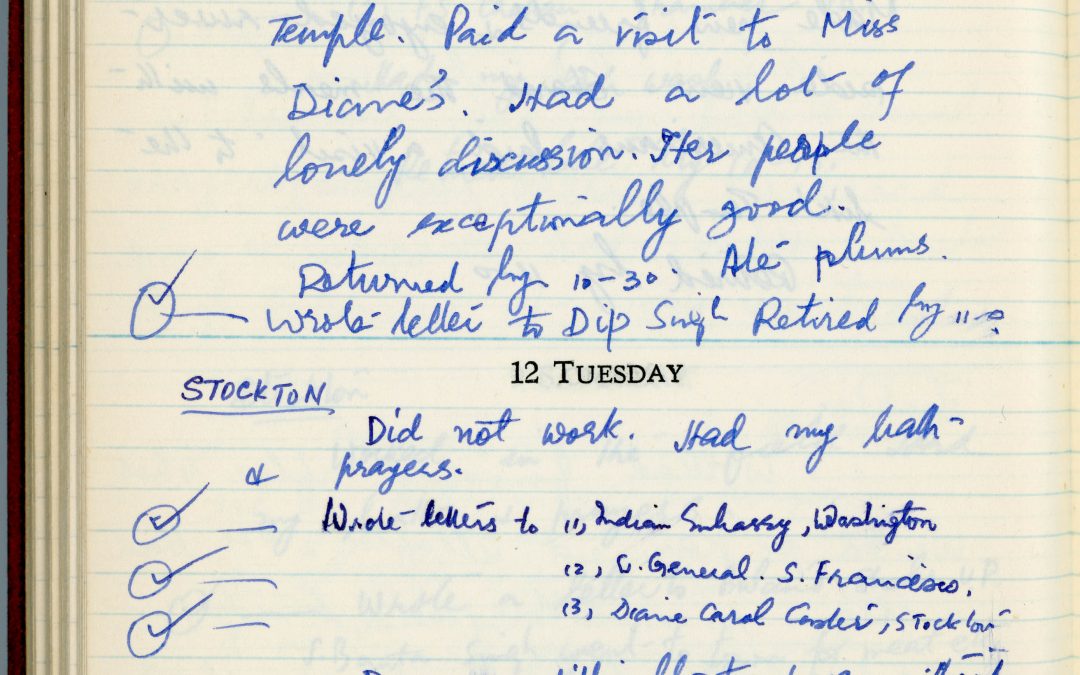 Temple. Paid a visit to Miss
Diane's. Had a lot of
lovely discussion. Her people
were exceptionally good.
Returned by 10-30. Ate plums.
Wrote letter to Dip Singh Retired by 11-0
12 TUESDAY
STOCKTON
Did not work. Had my bath
& prayers.
Wrote letters to (1, Indian Embassy, Washington
(2, C. General. S. Francisco.
(3, Diane Carol, Stockton